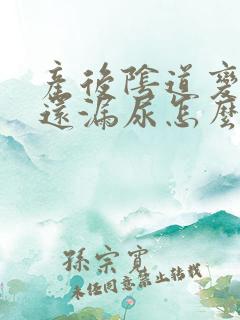 產後陰道
還漏尿怎麼
孫宗寬
未經同意禁止轉載